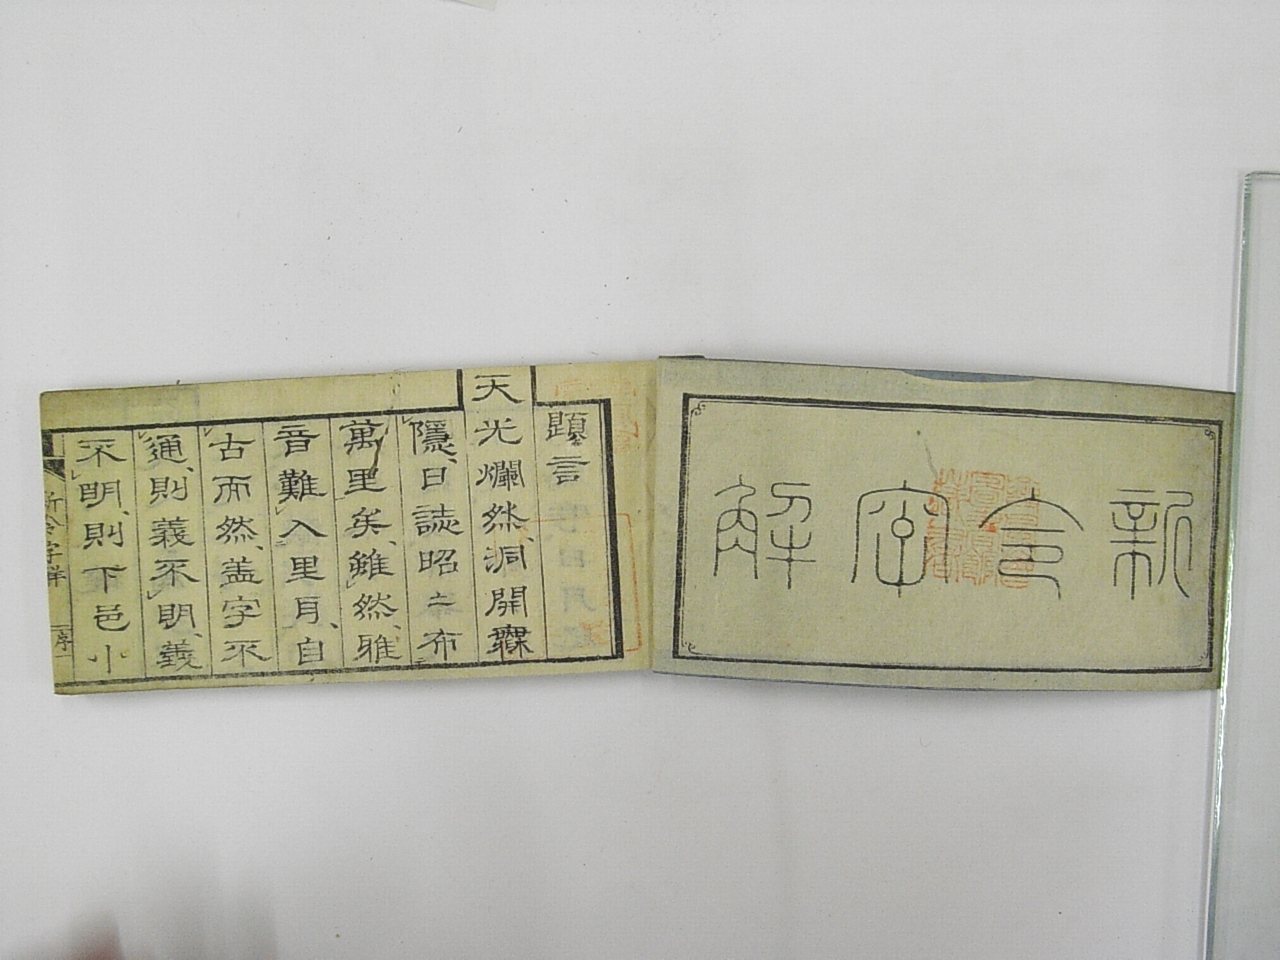 新令字解
題言
天光爛然、洞開
隱、日誌昭〻布
萬里矣、雖然、雅
音難入里耳、自
古而然、蓋字不
通、則義不明、義
不明、則下邑小
新令字解
序一